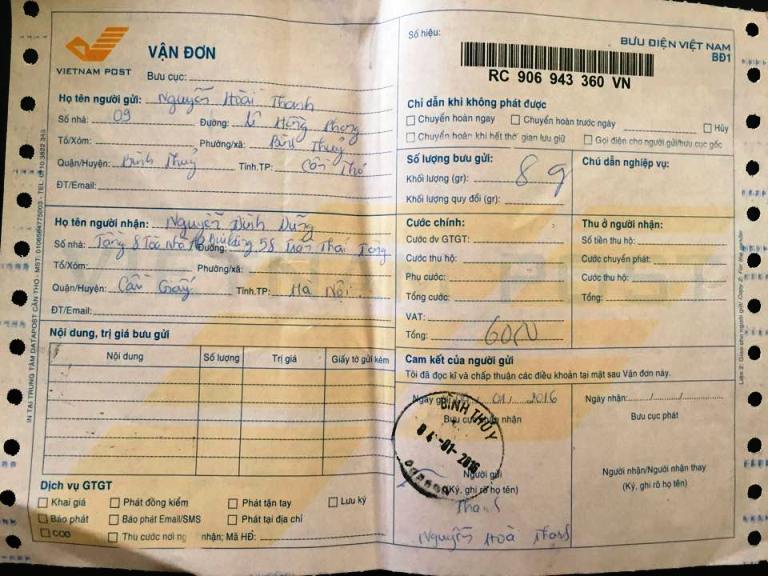 VIETNAM POST
VẬN ĐƠN
Bưu cục:
Họ tên người gửi: Nguyễn Hoài Thanh
Số nhà: 09 Đường: Lê Hồng Phong
Tổ/Xóm: Phường/xã: Bình Thuỷ
Quận/Huyện: Bình Thuỷ Tỉnh.TP: Cần Thơ
ĐT/Email:
Họ tên người nhận: Nguyễn Đình Dũng
Số nhà: Tầng 8 Toà Nhà Building, 58 Trần Thái Tông Đường:
Tổ/Xóm: Phường/xã:
Quận/Huyện: Cầu Giấy Tỉnh.TP: Hà Nội.
ĐT/Email:
Nội dung, trị giá bưu gửi
Nội dung Số lượng Trị giá Giấy tờ gửi kèm
Dịch vụ GTGT
Khai giá Phát đồng kiểm Phát tận tay Lưu ký
Báo phát Báo phát Email/SMS Phát tại địa chỉ
COD Thu cước nơi người nhận; Mã HĐ:
Số hiệu:
BƯU ĐIỆN VIỆT NAM
BĐ1
RC 906 943 360 VN
Chỉ dẫn khi không phát được
Chuyển hoàn ngay Chuyển hoàn trước ngày Hủy
Chuyển hoàn khi hết thời gian lưu giữ Gọi điện cho người gửi/bưu cục gốc
Số lượng bưu gửi: Chú dẫn nghiệp vụ:
Khối lượng (gr): 8g
Khối lượng quy đổi (gr):
Cước chính: Thu ở người nhận:
Cước dv GTGT: Số tiền thu hộ:
Cước thu hộ: Cước chuyển phát:
Phụ cước: Cước thu hộ:
Tổng cước: Tổng:
VAT:
Tổng:
Cam kết của người gửi
Tôi đã đọc kĩ và chấp thuận các điều khoản tại mặt sau Vận đơn này.
Ngày gửi: 01/2016 Ngày nhận: / /
Bưu cục chấp nhận Bưu cục phát
BÌNH THỦY
04-01-2016
Người gửi Người nhận/Người nhận thay
(Ký, ghi rõ họ tên) (Ký, ghi rõ họ tên)
Thanh
Nguyễn Hoài Thanh